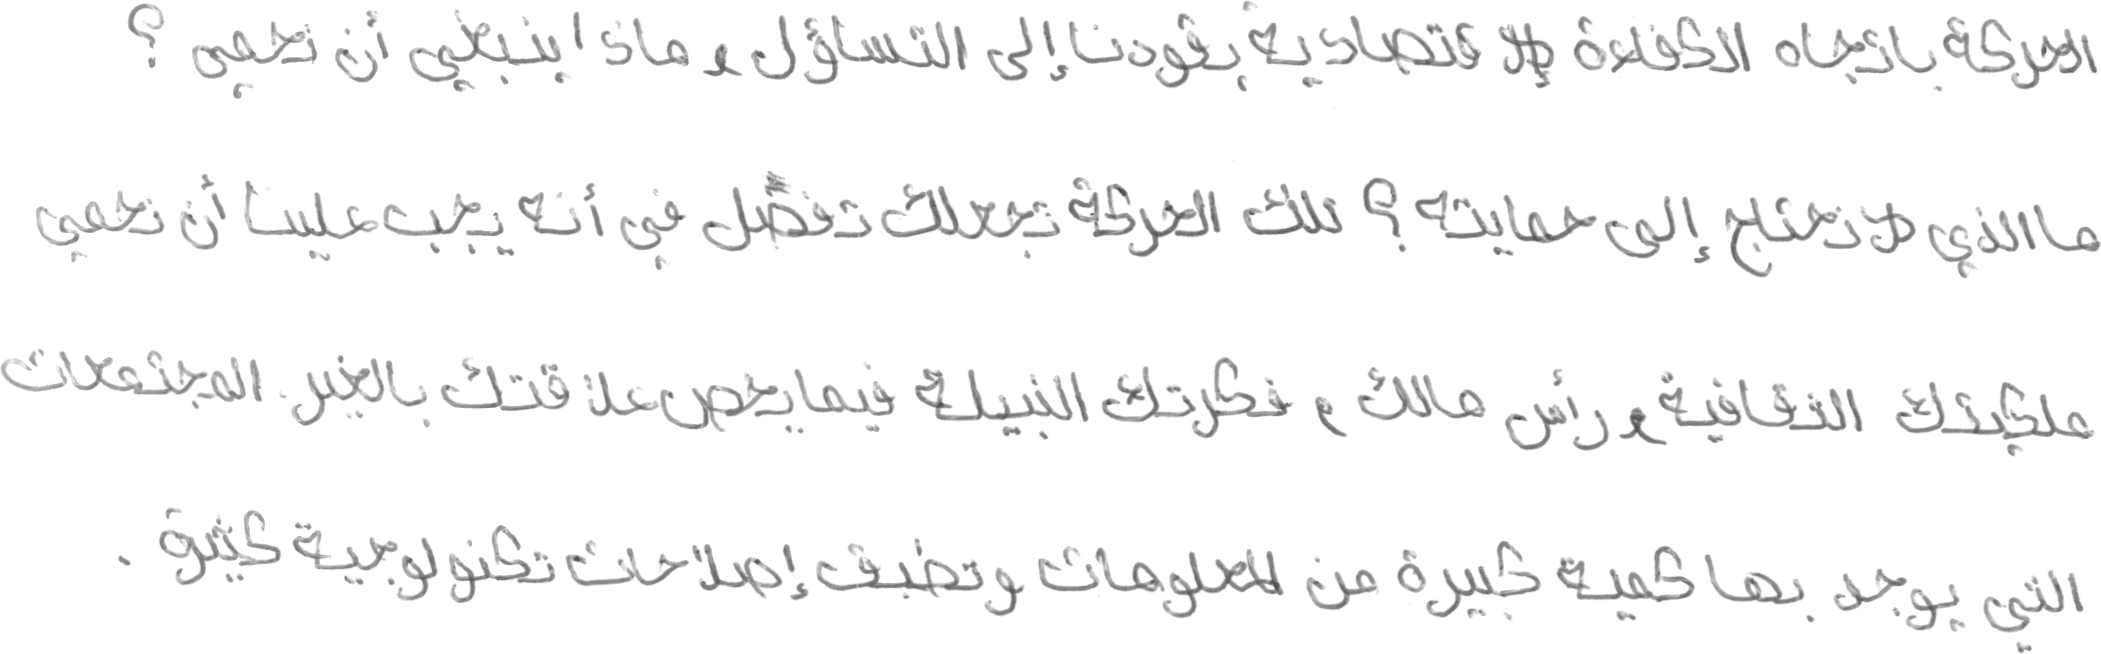 الحركة باتجاه الكفاءة الإقتصادية يقودنا إلى التساؤل و ماذا ينبغي أن نحمي ؟
ما الذي لا نحتاج إلى حمايته ؟ تلك الحركة تجعلك تفضّل في أنه يجب علينا أن نحمي
ملكيتك الثقافية و رأس مالك و فكرتك النبيلة فيما يخص علاقتك بالغير. المجتمعات
التي يوجد بها كمية كبيرة من المعلومات وتضيف إصلاحات تكنولوجية كثيرة .